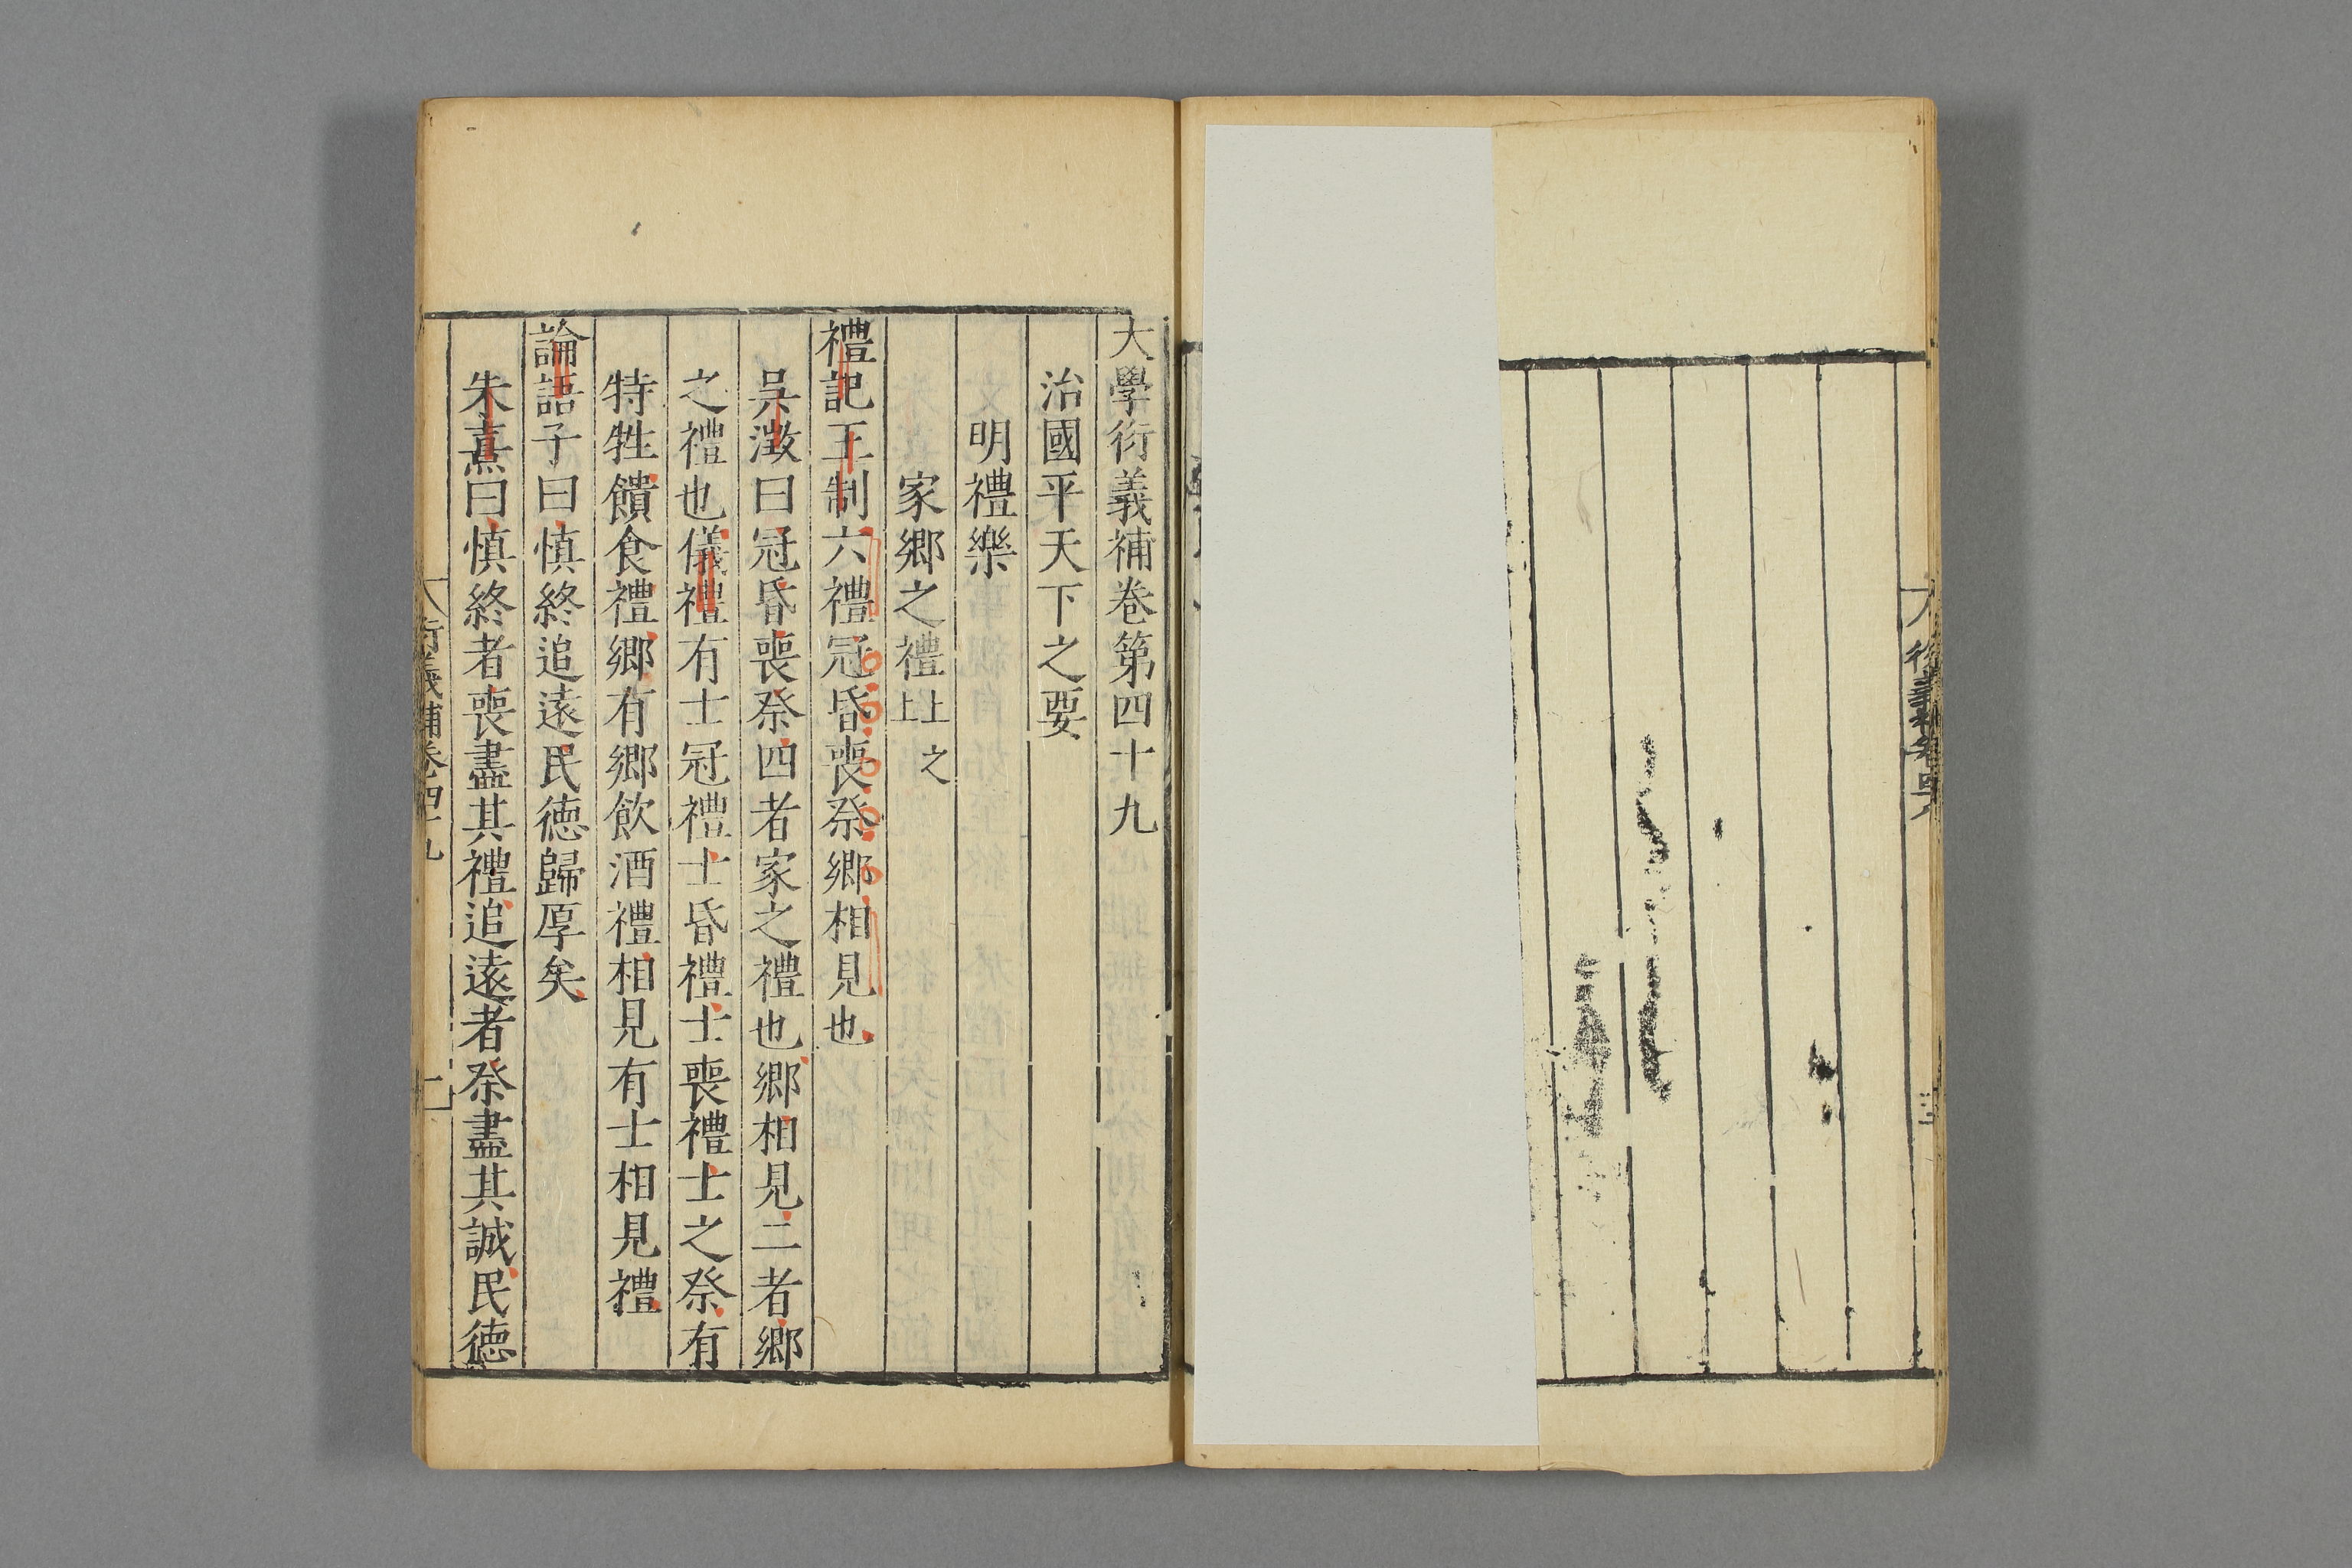 大學衍義補卷第四十九
治國平天下之要
明禮樂
家鄉之禮上之上
禮記王制六禮冠昏喪祭鄉相見也
吳澂曰冠昏喪祭四者家之禮也鄉相見二者鄉
之禮也儀禮有士冠禮士昏禮士喪禮士之祭有
特牲饋食禮鄉有鄉飲酒禮相見有士相見禮
論語子曰慎終追遠民德歸厚矣
朱熹曰慎終者喪盡其禮追遠者祭盡其誠民德